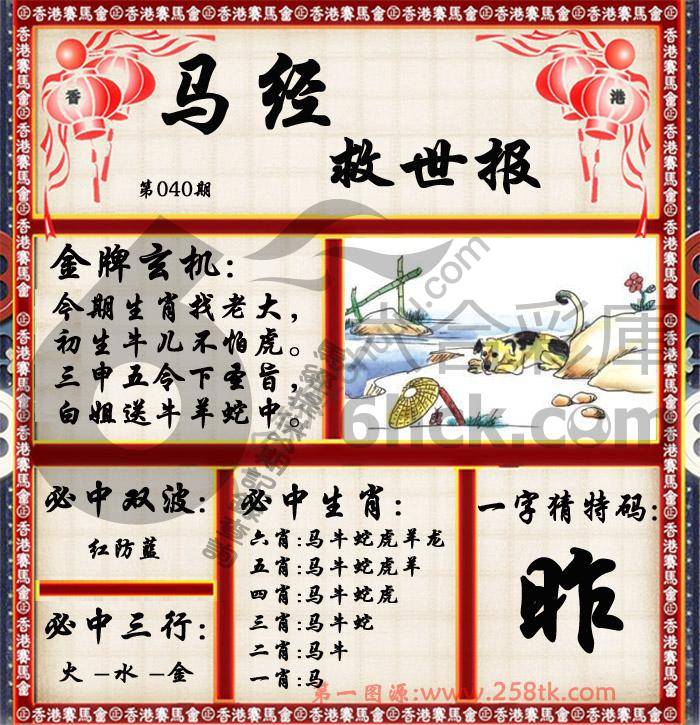 香港賽馬會
香
港
马经
救世报
第040期
金牌玄机:
今期生肖找老大，
初生牛儿不怕虎。
三申五令下圣旨，
白姐送牛羊蛇中。
六合彩庫
6hck.com
必中双波:
红防蓝
必中三行:
火-水-金
必中生肖:
六肖:马牛蛇虎羊龙
五肖:马牛蛇虎羊
四肖:马牛蛇虎
三肖:马牛蛇
二肖:马牛
一肖:马
一字猜特码:
昨
第一图源:www.258tk.com